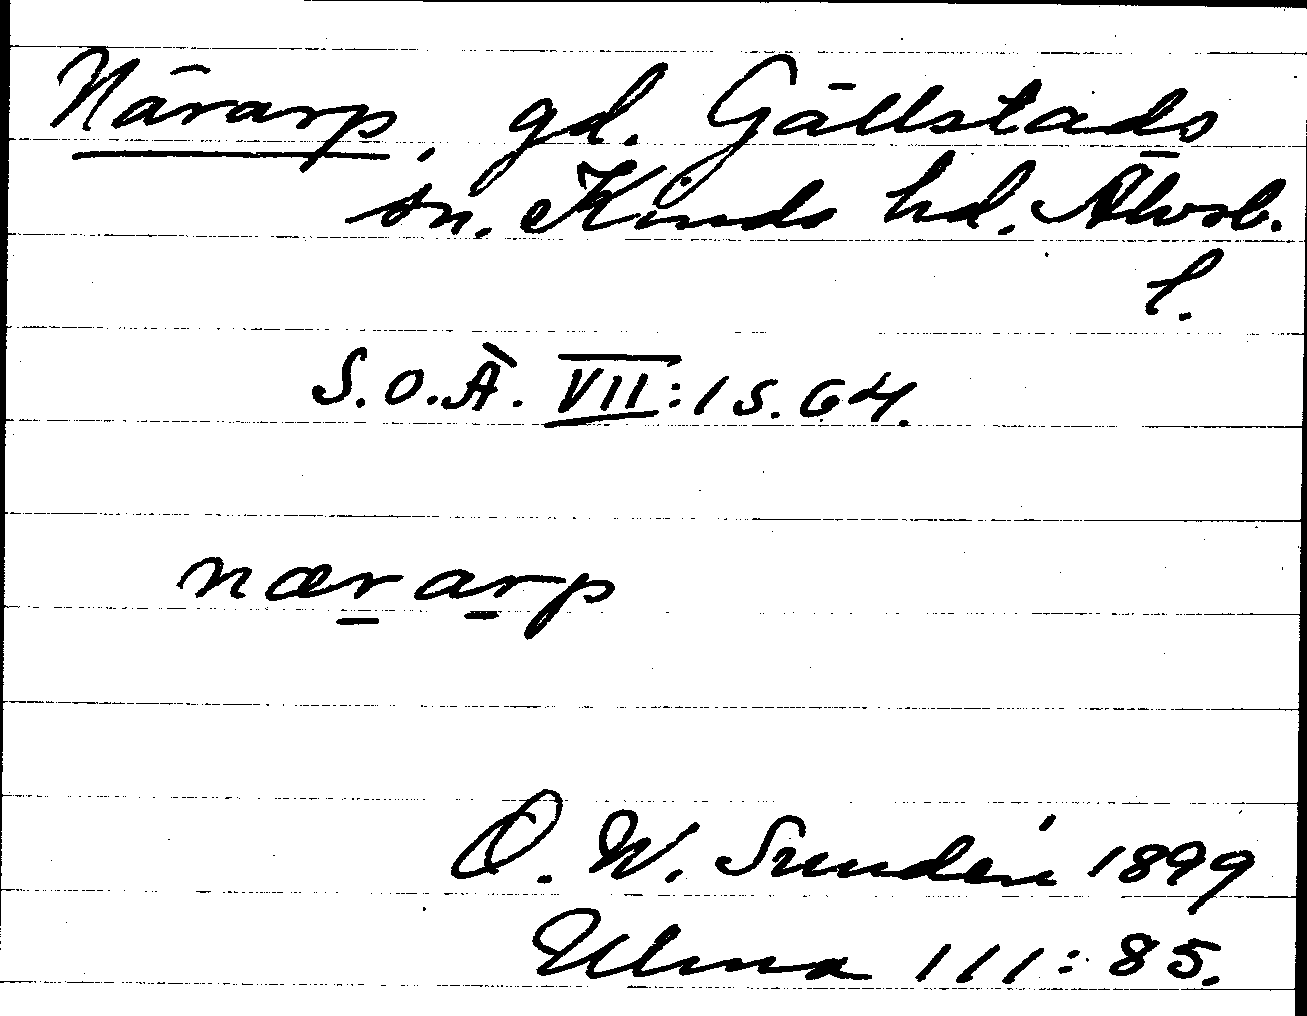 Närarp, gd. Gällstads
sn. Kinds hd. Älvsb.
l.
S.O.Ä. VII:1 s. 64.
nærarp
O. W. Sundén 1899
Ulma 111:85.